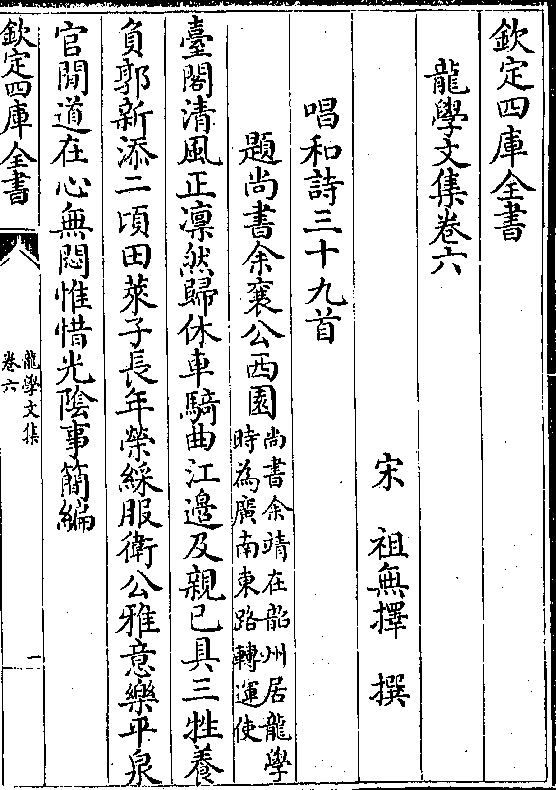 欽定四庫全書
龍學文集卷六
宋　祖無擇　撰
唱和詩三十九首
題尚書余襄公西園
尚書余靖在韶州居龍學
時為廣南東路轉運使
臺閣清風正凛然歸休車騎曲江邊及親已具三牲養
負郭新添二頃田萊子長年榮綵服衛公雅意樂平泉
官閒道在心無悶惟惜光陰事簡編
欽定四庫全書
龍學文集
卷六
一